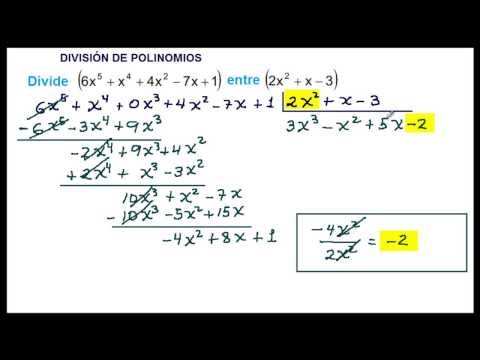 DIVISIÓN DE POLINOMIOS
Divide (6x⁵ + x⁴ + 4x² − 7x + 1) entre (2x² + x − 3)
6x⁵ + x⁴ + 0x³ + 4x² − 7x + 1 | 2x² + x − 3
− 6x⁵ − 3x⁴ + 9x³ 3x³ − x² + 5x − 2
− 2x⁴ + 9x³ + 4x²
+ 2x⁴ + x³ − 3x²
10x³ + x² − 7x
− 10x³ − 5x² + 15x
−4x² + 8x + 1
−4x² / 2x² = −2